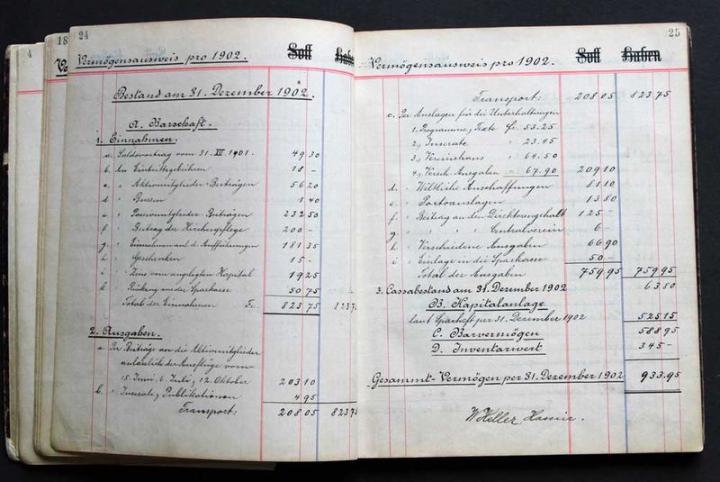 24
Soll
Haben
Vermögensausweis pro 1902.
Bestand am 31. Dezember 1902.
A. Barschaft.
1. Einnahmen:
a. Saldovortrag vom 31. XII. 1901. 49 30
b. An Eintrittsgebühren 18 -
c. " Aktivmitglieder-Beiträgen 56 20
d. " Bussen 1 40
e. " Passivmitglieder-Beiträgen 232 50
f. " Beitrag der Kirchenpflege 200 -
g. " Einnahmen an d. Aufführungen 181 35
h. " Geschenken 15 -
i. " Zins vom angelegten Kapital 19 25
k. " Rückzug an der Sparkasse 50 75
Total der Einnahmen Fr. 823 75 823 7
2. Ausgaben.
a. Per Beiträge an die Aktivmitglieder
anlässlich der Ausflüge vom
15. Juni, 6. Juli, 12. Oktober 203 10
b. " Inserate, Publikationen 4 95
Transport: 208 05 823 7
25
Soll
Haben
Vermögensausweis pro 1902.
Transport: 208 05 823 75
c. Per Auslagen für die Unterhaltungen
1. Programme, Texte Fr. 53.25
2, Inserate " 23.45
3, Vereinshaus " 64.50
4, Versch. Ausgaben " 67.90 209 10
d. " Anschaffungen 81 10
e. " Portoauslagen 13 80
f. " Beitrag an den Direktionsgehalt 125 -
g. " " " " Centralverein 6 -
h. " Verschiedene Ausgaben 66 90
i. " Einlage in die Sparkasse 50 -
Total der Ausgaben 759 95 759 95
3. Cassabestand am 31. Dezember 1902 63 80
B. Kapitalanlage
laut Sparheft per 31. Dezember 1902 525 15
C. Barvermögen 588 95
D. Inventarwert 345 -
Gesammt-Vermögen per 31. Dezember 1902 933.95
W. Heller